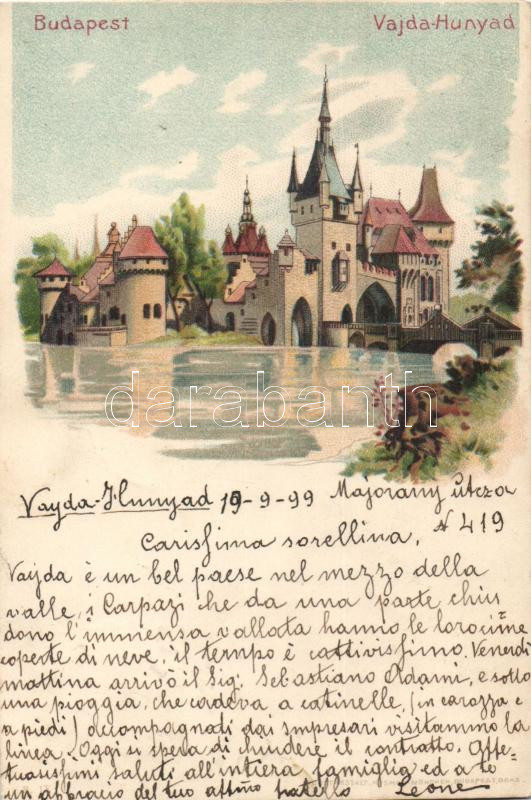 Budapest Vajda-Hunyad
darabanth
Vayda-Hunyad 19-9-99 Majorany útcza
N 419
Carissima sorellina,
Vajda è un bel paese nel mezzo della
valle, i Carpazi che da una parte chiu
dono l'immensa vallata hanno le loro cime
coperte di neve, il tempo è cattivissimo. Venerdi
mattina arrivò il Sig. Sebastiano Adami, e sotto
una pioggia, che cadeva a catinelle, (in carozza e
a piedi) accompagnati dai impresari visitammo la
linea. Oggi si spera di chiudere il contratto. Affe-
tuosissimi saluti all'intiera famiglia ed a te
un abbraccio del tuo affmo fratello Leone
MÜNCHEN, BUDAPEST,